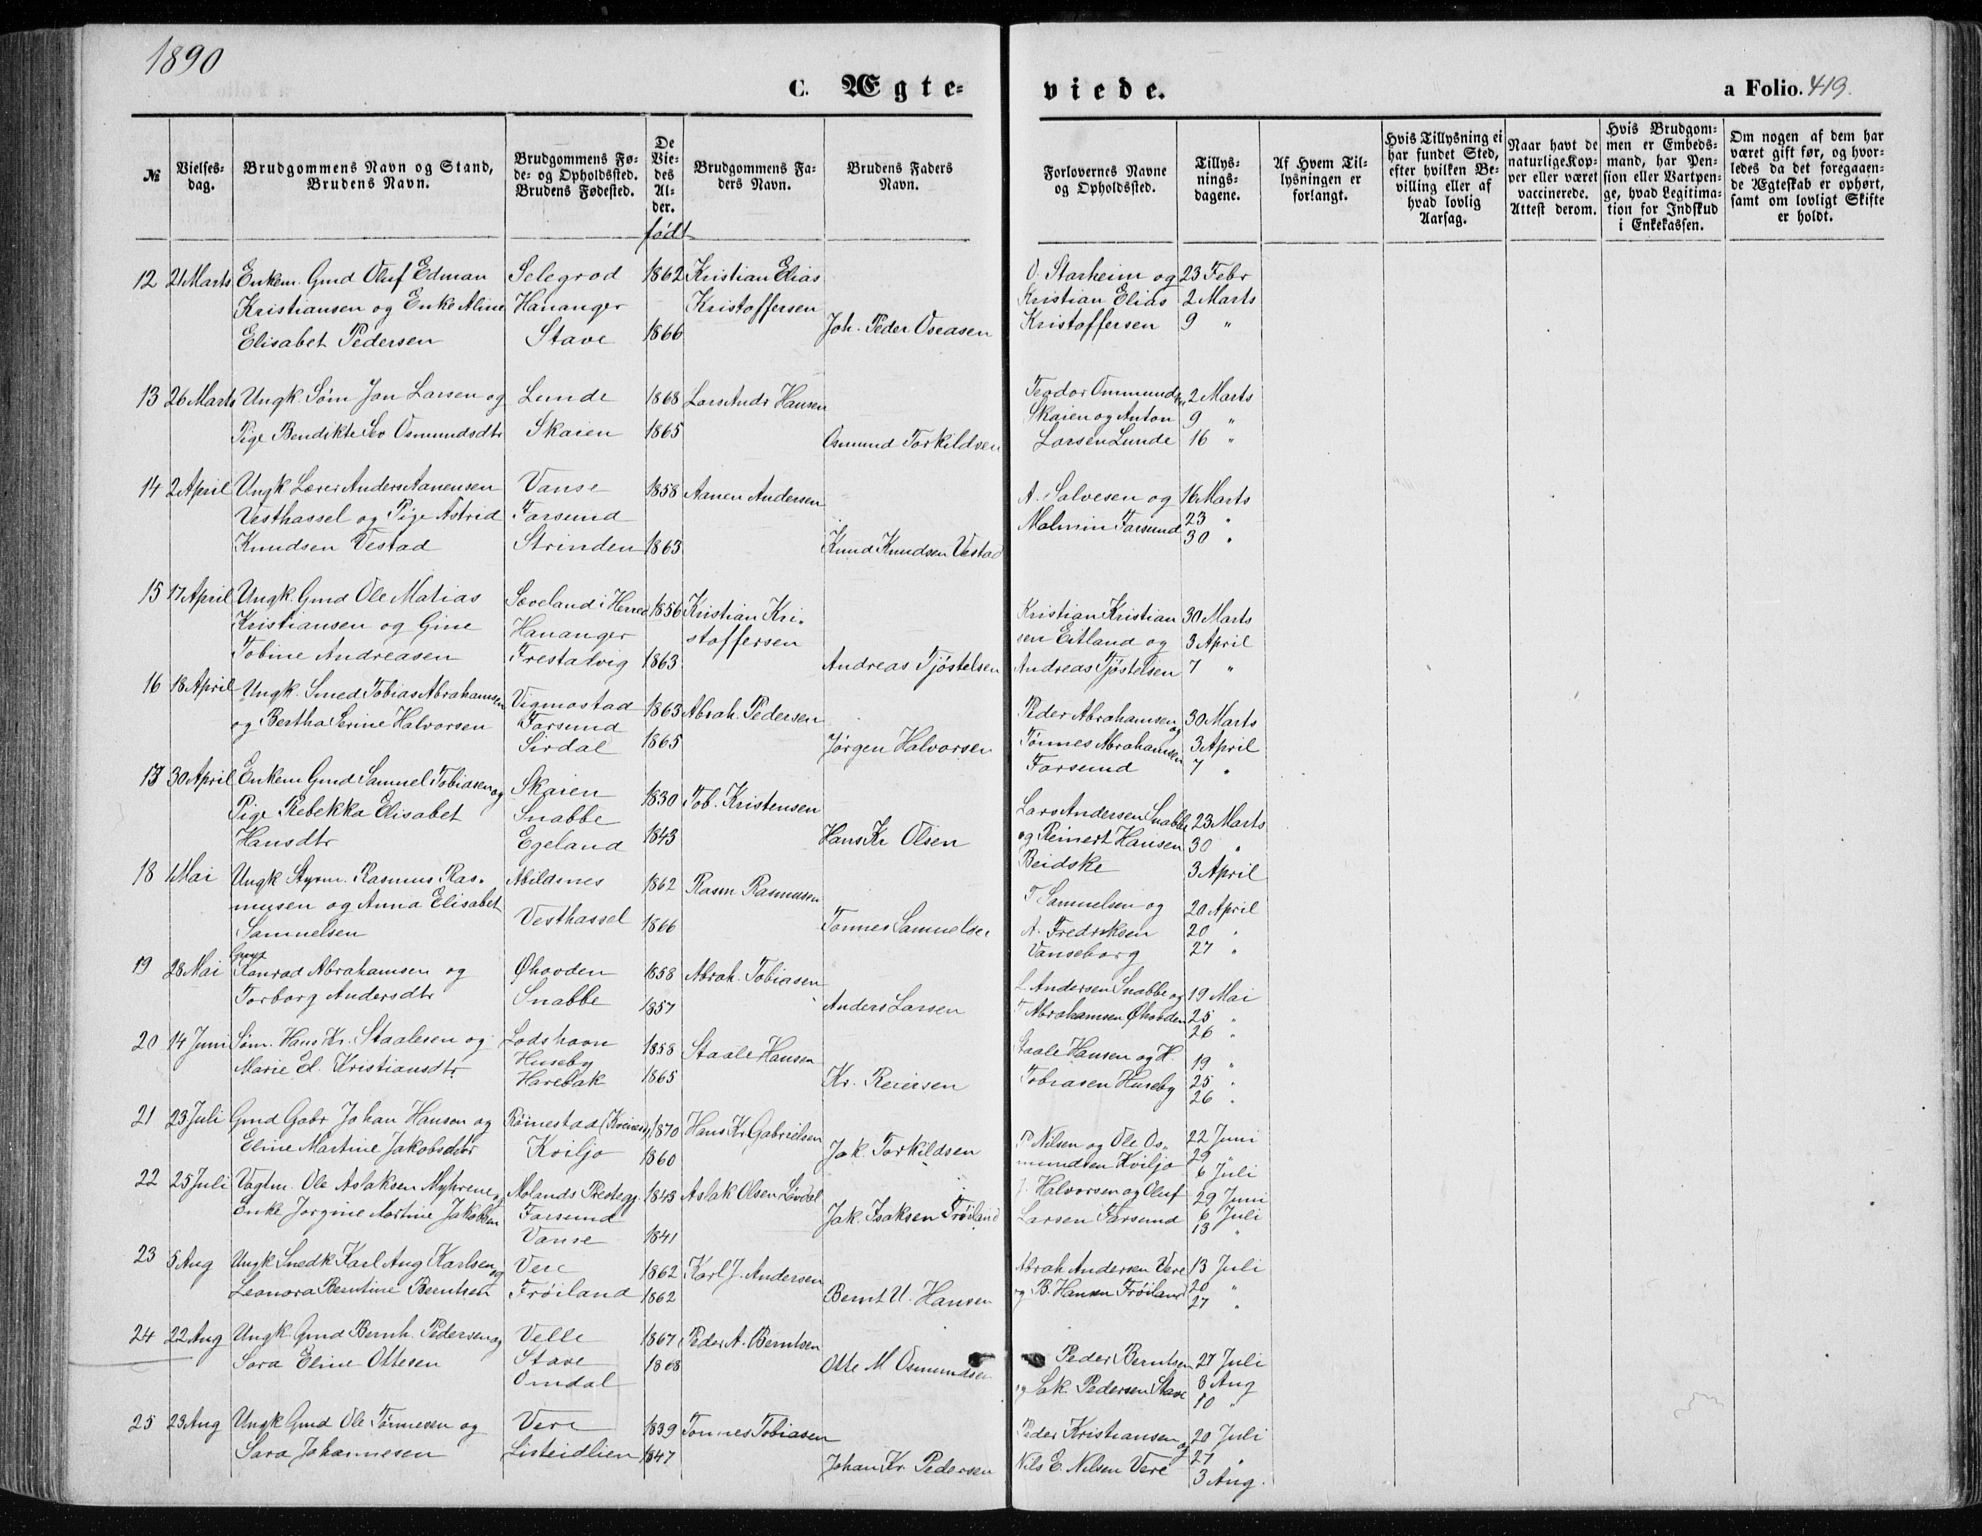 1890
C. Ægte- viede. a Folio. 419.
№
Vielses-
dag.
Brudgommens Navn og Stand,
Brudens Navn.
Brudgommens Fø-
de- og Opholdssted.
Brudens Fødested.
De
Vie-
des
Al-
der.
født
Brudgommens Fa-
ders Navn.
Brudens Faders
Navn.
Forlovernes Navne
og Opholdssted.
Tillys-
nings-
dagene.
Af Hvem Til-
lysningen er
forlangt.
Hvis Tillysning ei
har fundet Sted,
efter hvilken Be-
villing eller af
hvad lovlig
Aarsag.
Naar havt de
naturlige Kop-
per eller været
vaccinerede.
Attest derom.
Hvis Brudgom-
men er Embeds-
mand, har Pen-
sion eller Vartpen-
ge, hvad Legitima-
tion for Indskud
i Enkekassen.
Om nogen af dem har
været gift før, og hvor-
ledes da det foregaaen-
de Ægteskab er ophørt,
samt om lovligt Skifte
er holdt.
12 21 Marts Enkem. Gmd Oluf Edman Selegrod 1862 Kristian Elias O. Starheim og 23 Febr
Kristiansen og Enke Aline Hananger Kristoffersen Kristian Elias 2 Marts
Elisabet Pedersen Stave 1866 Joh. Peder Oseasen Kristoffersen 9 "
13 26 Marts Ungk. Søm Jan Larsen og Lunde 1868 Lars Andr Hansen Teodor Ommunds 2 Marts
Pige Bendikte Sev Osmundsdtr Skaien 1865 Osmund Torkildsen Skaien og Anton 9 "
Larsen Lunde 16 "
14 2 April Ungk Lærer Anders Aanensen Vanse 1858 Aanen Andersen A. Salvesen og 16 Marts
Vesthassel og Pige Astrid Farsund Malmin Farsund 23 "
Knudsen Vestad Strinden 1863 Knud Knudsen Vestad 30 "
15 17 April Ungk. Gmd Ole Matias Sæveland i Herred 1856 Kristian Kri- Kristian Kristian 30 Marts
Kristiansen og Gine Hananger stoffersen sen Eitland og 3 April
Tobine Andreasen Frestalvig 1863 Andreas Tjøstelsen Andreas Tjøstelsen 7 "
16 18 April Ungk. Smed Tobias Abrahamsen Vigmostad 1863 Abrah. Pedersen Peder Abrahamsen og 30 Marts
og Bertha Serine Halvorsen Farsund Tønnes Abrahamsen 3 April
Sirdal 1865 Jørgen Halvorsen Farsund 7 "
17 30 April Enkem Gmd Samuel Tobiasen og Skaien 1830 Tob. Kristensen Lars Andersen Snabbe 23 Marts
Pige Rebekka Elisabet Snabbe og Reinert Hansen 30 "
Hansdtr Egeland 1843 Hans Kr Olsen Beidske 3 April
18 1 Mai Ungk Styrm. Rasmus Ras- Abildsnes 1862 Rasm Rasmusen T Samuelsen og 20 April
musen og Anna Elisabet Vesthassel 1866 Tønnes Samuelsen A. Fredriksen 20 "
Samuelsen Vanseborg 27 "
19 28 Mai Konrad Abrahamsen og Øhovden 1858 Abrah. Tobiasen L Andersen Snabbe og 19 Mai
Torborg Andersdtr Snabbe 1857 Anders Larsen T Abrahamsen Øhovden 25 "
26 "
20 14 Juni Søm. Hans Kr. Staalesen og Lodshavn 1858 Staale Hansen Staale Hansen og H. 19 "
Marie El. Kristiansdtr Huseby Tobiasen Huseby 25 "
Harebak 1865 Kr. Reiersen 26 "
21 23 Juli Gmd Gabr Johan Hansen og Røinestad 1870 Hans Kr Gabrielsen P Nilsen og Ole Os- 22 Juni
Eline Martine Jakobsdtr Kviljo 1860 Jak. Torkildsen mundsen Kviljo 29 "
6 Juli
22 25 Juli Vagtm. Ole Aslaksen Myhrene og Molands Prestegj. 1843 Aslak Olsen J. Halvorsen og Oluf 29 Juni
Enke Jorgine Martine Jakobsen Farsund Jak. Isaksen Frøiland Larsen Farsund 6 Juli
Vanse 1841 13 "
23 5 Aug Ungk Snedk Karl Aug Karlsen og Vere 1862 Karl J. Andersen Abrah Andersen Vere 13 Juli
Leonora Berntine Berntsdt Frøiland 1862 Bernt U. Hansen og B. Hansen Frøiland 20 "
27 "
24 22 Aug Ungk. Gmd Bernh. Pedersen og Velle 1867 Peder A. Berntsen Peder Berntsen 27 Juli
Sara Eline Ottesen Stave 1868 Otte M Osmundsen og Sak. Pedersen Stave 3 Aug
Omdal 10 "
25 23 Aug Ungk Gmd Ole Tønnesen og Vere 1839 Tønnes Tobiasen Peder Kristiansen og 20 Juli
Sara Johannesen Listeidlien 1847 Johan Kr Pedersen Nils E. Nilsen Vere 27 "
3 Aug.